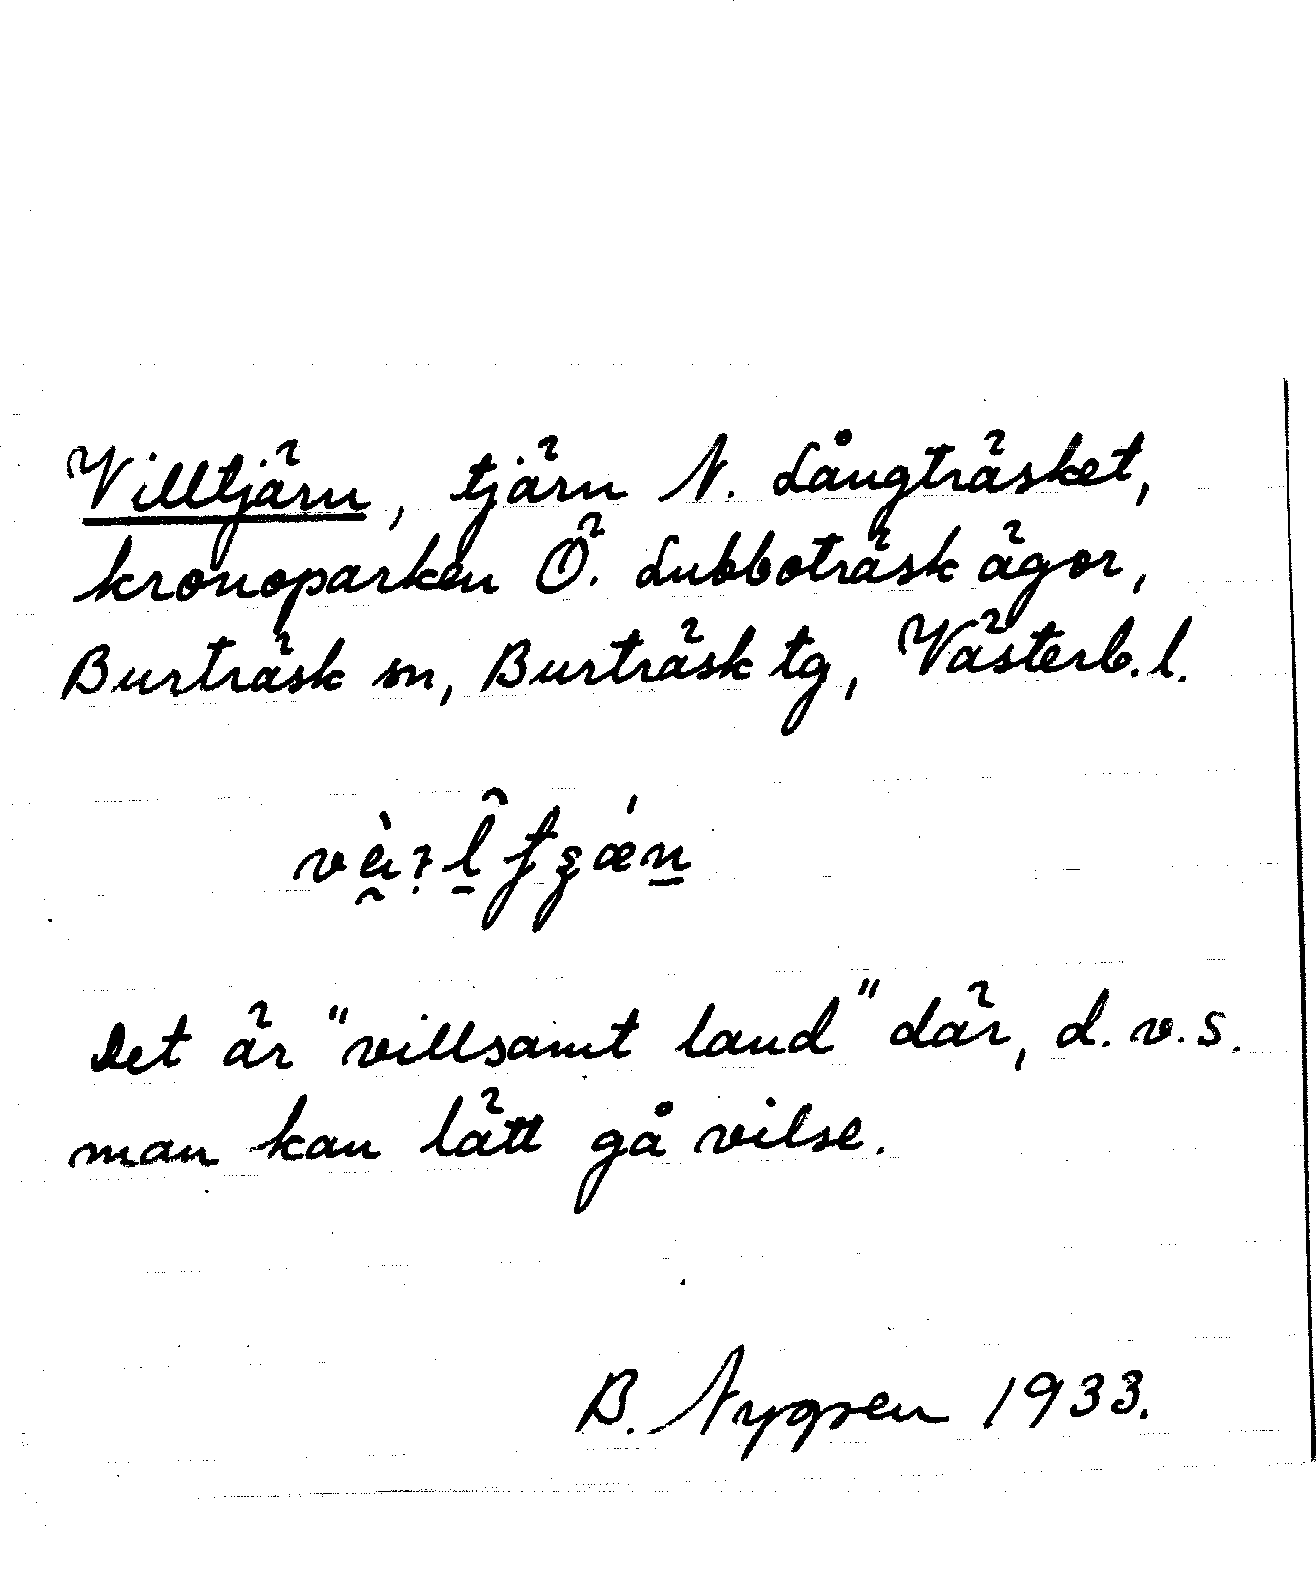 Villtjärn, tjärn N. Långträsket,
kronoparken Ö. Lubboträsk ägor,
Burträsk sn, Burträsk tg, Västerb. l.
Det är "villsamt land" där, d.v.s.
man kan lätt gå vilse.
B. Nygren 1933.